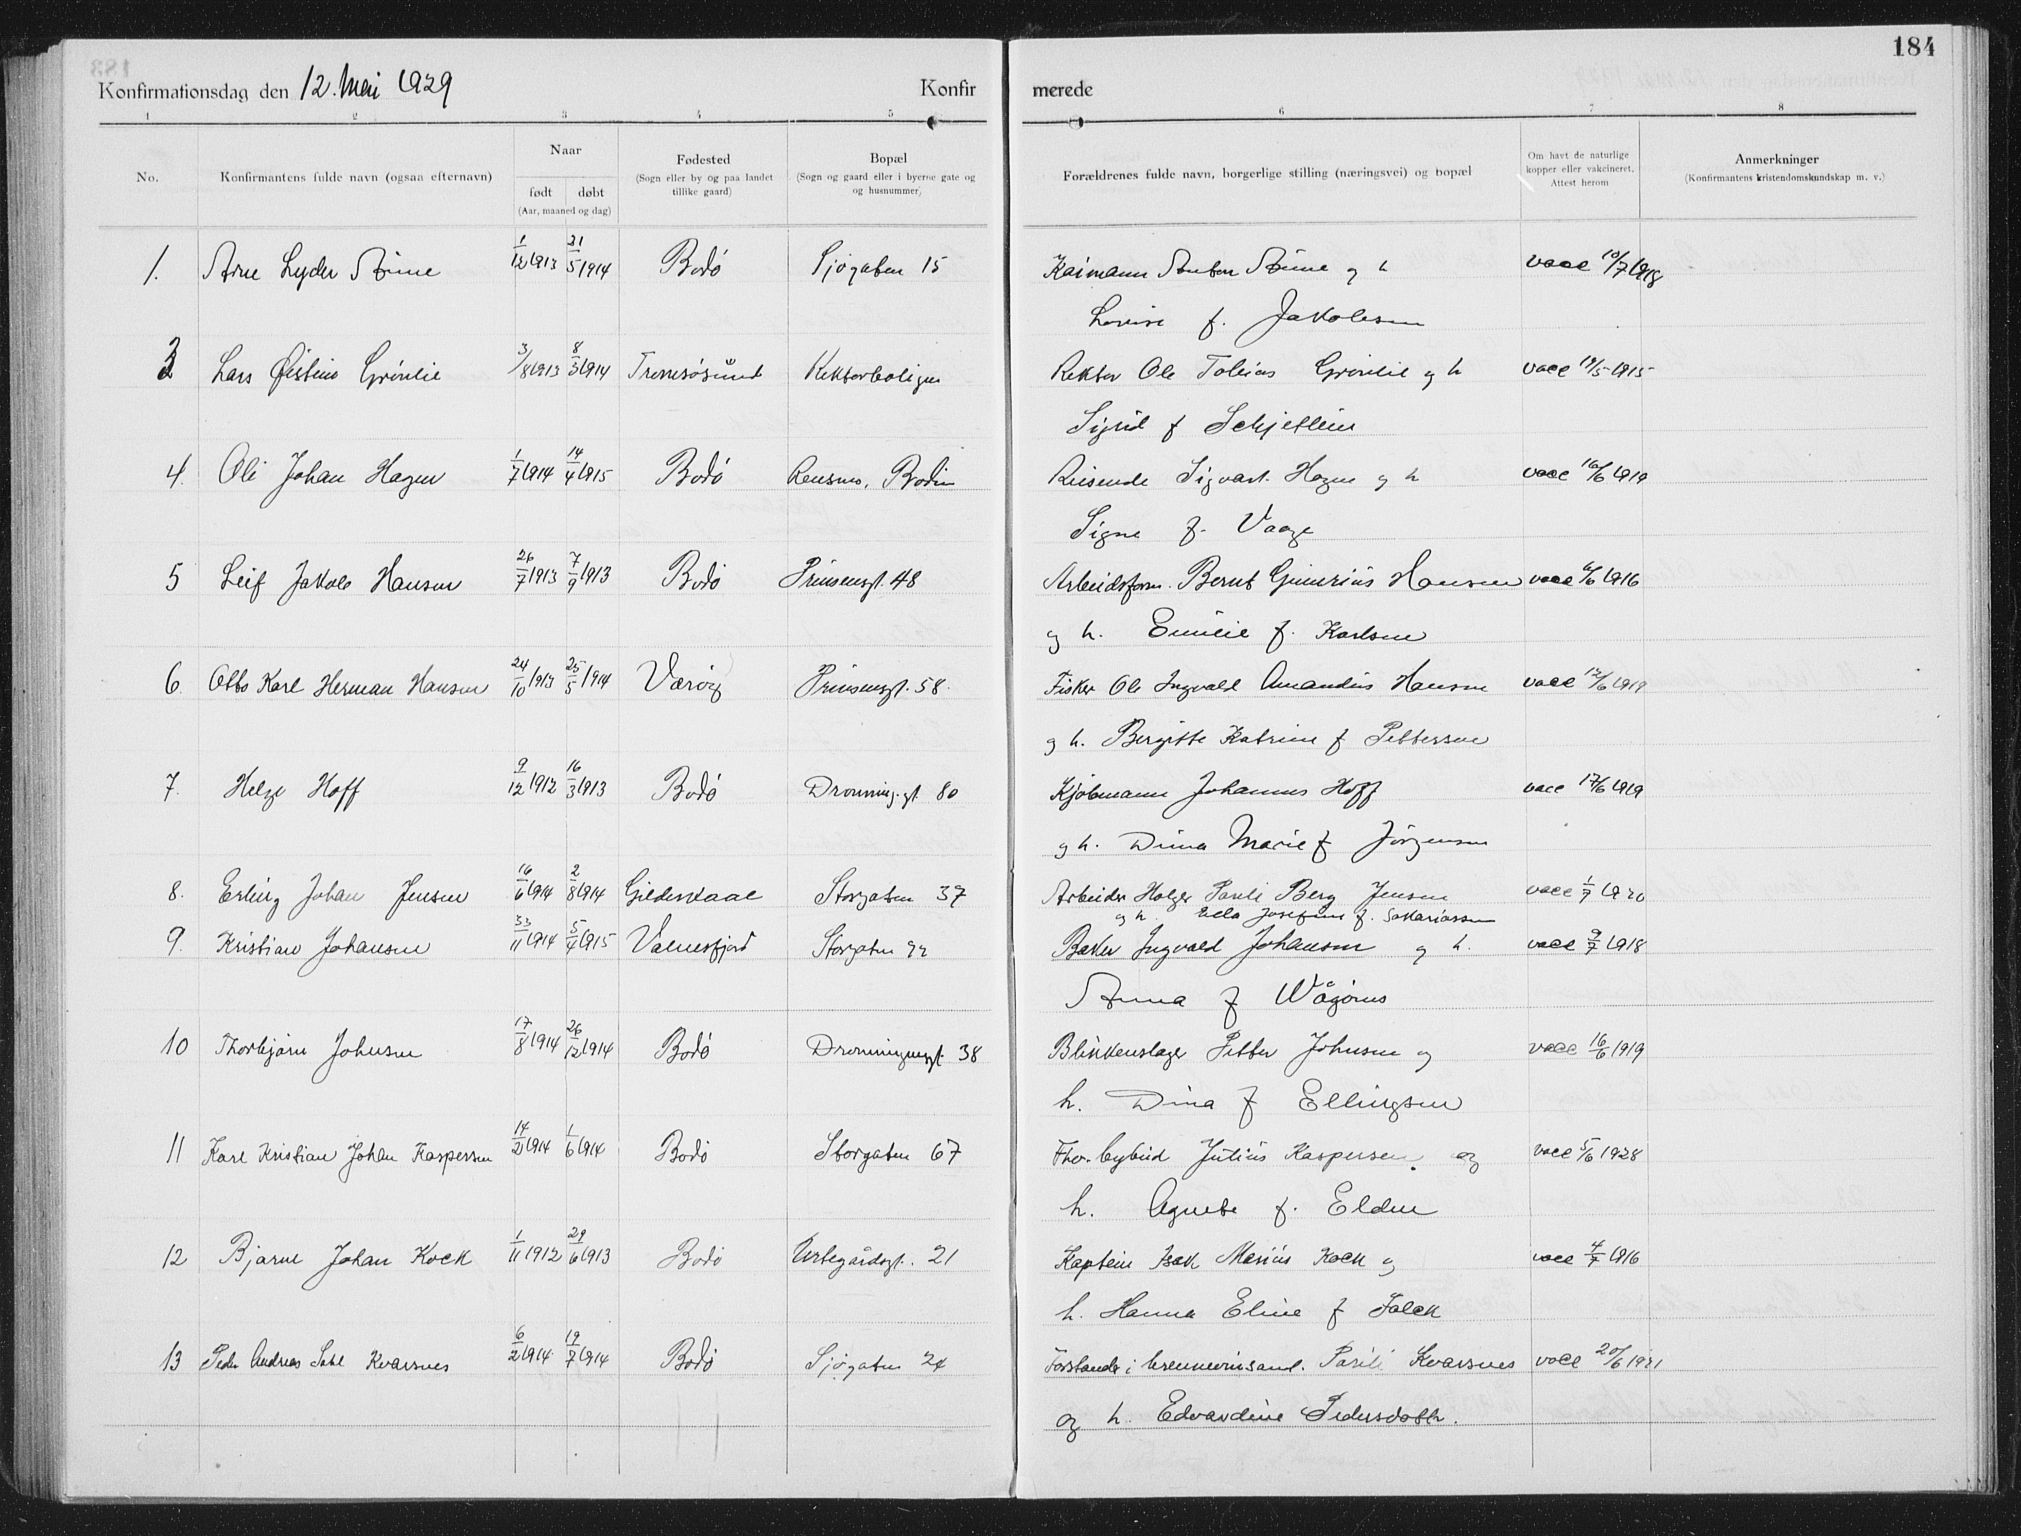 184
Konfirmationsdag den 12. Mai 1929 Konfirmerede
1 2 3 4 5 6 7 8
No. Konfirmantens fulde navn (ogsaa efternavn) Naar født døbt (Aar, maaned og dag) Fødested (Sogn eller by og paa landet tillike gaard) Bopæl (Sogn og gaard eller i byerne gate og og husnummer) Forældrenes fulde navn, borgerlige stilling (næringsvei) og bopæl Om havt de naturlige kopper eller vakcineret. Attest herom Anmerkninger (Konfirmantens kristendomskundskap m. v.)
1. Arne Lyder Aune 1/12 1913 31/5 1914 Bodø Sjøgaten 15 Kaimann Anton Aune og h vacc 10/7 1918
Lovise f. Jakobsen
3 Lars Østein Grønlie 3/8 1913 8/3 1914 Tromsøsund Rektorboligen Rektor Ole Tobias Grønlie og h vacc 19/5 1915
Sigrid f Schjetlein
4. Ole Johan Hagen 1/7 1914 14/4 1915 Bodø Rensaas, Bodin Reisende Sigvart Hagen og h vacc 16/6 1919
Signe f. Vaage
5 Leif Jakob Hansen 26/7 1913 7/9 1913 Bodø Prinsensgt. 48 Arbeidsform. Bernt Gunerius Hansen vacc 6/6 1916
og h. Emilie f. Karlsen
6. Otto Karl Herman Hansen 24/10 1913 25/5 1914 Værøy Prinsensgt. 58. Fisker Ole Ingvald Amandus Hansen vacc 17/6 1919
og h. Bergitte Katrine f Pettersen
7. Helge Hoff 9/12 1912 16/3 1913 Bodø Dronning.gt 80 Kjøbmann Johannes Hoff vacc 17/6 1919
og h. Dina Marie f Jørgensen
8. Erling Johan Jensen 16/6 1914 2/8 1914 Gildeskaal Storgaten 37 Arbeider Holger Pauli Berg Jensen vacc 1/7 1920
og h. Ella Josefine f. Sakariassen
9. Kristian Johansen 11 1914 5/4 1915 Valnesfjord Storgaten Baker Ingvald Johansen og h. vacc 9/7 1918
Anna f Vågønes
10 Thorbjørn Johnsen 17/8 1914 26/12 1914 Bodø Dronningensgt. 38 Blikkenslager Petter Johnsen og vacc 16/6 1919
h. Dina f Ellingsen
11 Karl Kristian Johan Kaspersen 14/2 1914 1/6 1914 Bodø Storgaten 67 Fhv. bybud Julius Kaspersen. og vacc 5/6 1928
h. Agnete f. Elden
12 Bjarne Johan Kock 1/11 1912 29/6 1913 Bodø Urtegårdsgt. 21 Kaptein Isak Marius Kock og vacc 4/7 1916
h. Hanna Eline f Falck
13 Peder Andreas Kvarsnes 6/2 1914. 19/7 1914 Bodø Sjøgaten 24 Forstander i brennevinsaml. Pauli Kvarsnes vacc 20/6 1921
og h. Edvardine Pedersdatter.